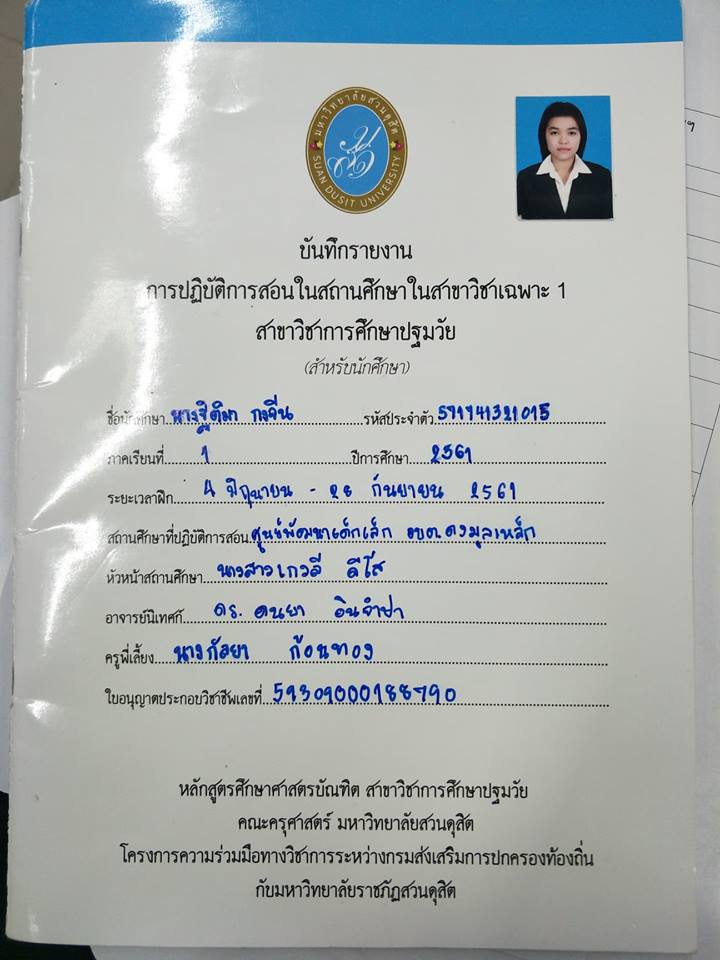 มหาวิทยาลัยสวนดุสิต
SUAN DUSIT UNIVERSITY
บันทึกรายงาน
การปฏิบัติการสอนในสถานศึกษาในสาขาวิชาเฉพาะ 1
สาขาวิชาการศึกษาปฐมวัย
(สำหรับนักศึกษา)
ชื่อนักศึกษา นางฐิติมา กงจีน รหัสประจำตัว 571741321015
ภาคเรียนที่ 1 ปีการศึกษา 2561
ระยะเวลาฝึก 4 มิถุนายน - 28 กันยายน 2561
สถานศึกษาที่ปฏิบัติการสอน ศูนย์พัฒนาเด็กเล็ก อบต.ดงมูลเหล็ก
หัวหน้าสถานศึกษา นางสาวเกวลี ลีโส
อาจารย์นิเทศก์ ดร. ดนยา อินจำปา
ครูพี่เลี้ยง นางกัลยา ก้อนทอง
ใบอนุญาตประกอบวิชาชีพเลขที่ 59309000188790
หลักสูตรศึกษาศาสตรบัณฑิต สาขาวิชาการศึกษาปฐมวัย
คณะครุศาสตร์ มหาวิทยาลัยสวนดุสิต
โครงการความร่วมมือทางวิชาการระหว่างกรมส่งเสริมการปกครองท้องถิ่น
กับมหาวิทยาลัยราชภัฏสวนดุสิต